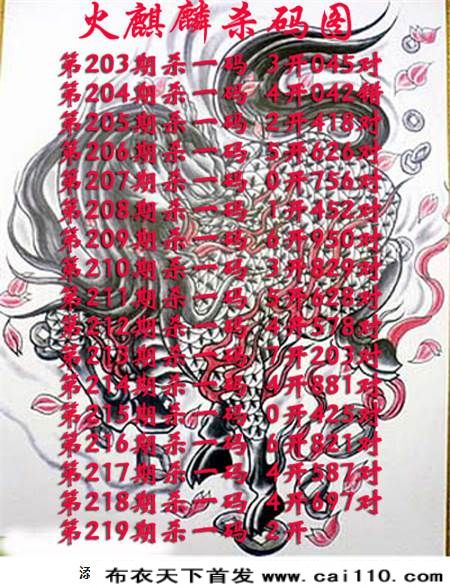 火麒麟杀码图
第203期杀一码 3开045对
第204期杀一码 4开042错
第205期杀一码 2开418对
第206期杀一码 5开626对
第207期杀一码 0开756对
第208期杀一码 1开452对
第209期杀一码 6开950对
第210期杀一码 3开829对
第211期杀一码 5开628对
第212期杀一码 4开578对
第213期杀一码 7开203对
第214期杀一码 4开881对
第215期杀一码 0开425对
第216期杀一码 6开821对
第217期杀一码 4开587对
第218期杀一码 4开697对
第219期杀一码 2开
布衣天下首发 www.cai110.com